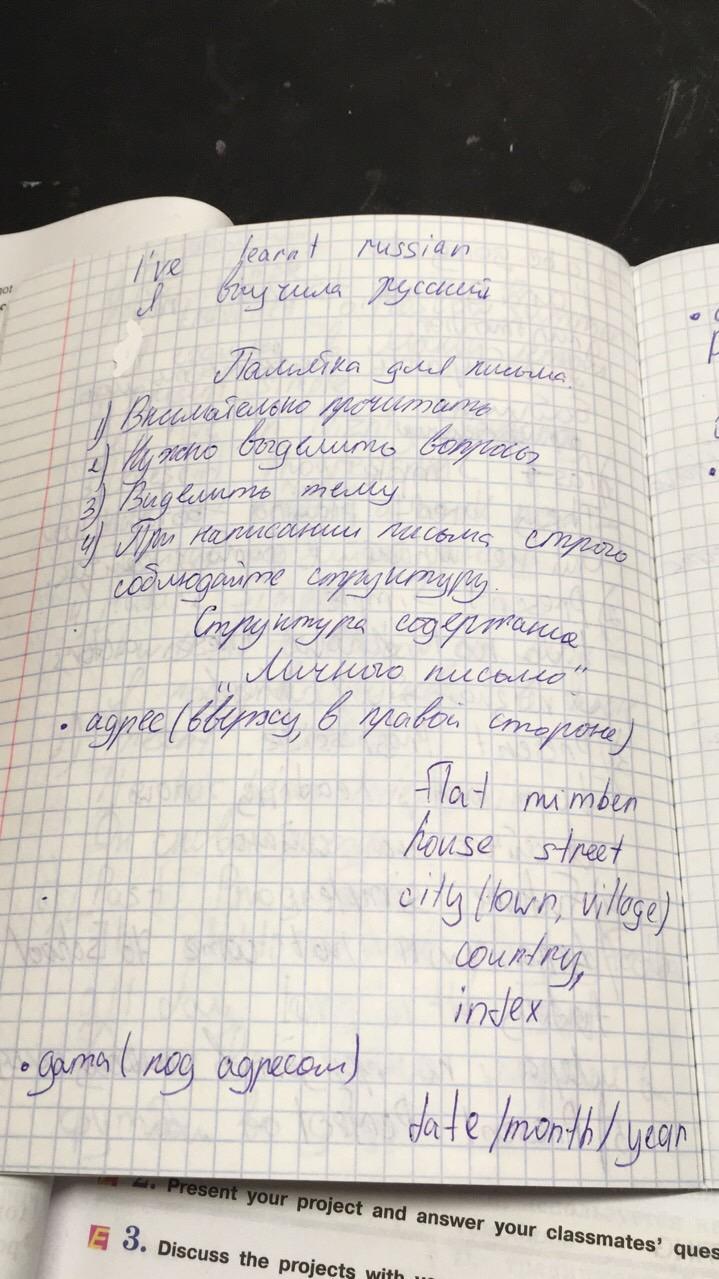 I've learnt russian
Я выучила русский
Памятка для письма.
1) Внимательно прочитать
2) Нужно выделить вопросы
3) Виделить тему
4) При написании письма строго
соблюдайте структуру.
Структура содержания
"Личного письмо"
• адрес (вверху, в правой стороне)
flat number
house street
city (town, village)
country,
index
• дата ( под адресом)
date/month/year
2. Present your project and answer your classmates' ques
E 3. Discuss the projects with